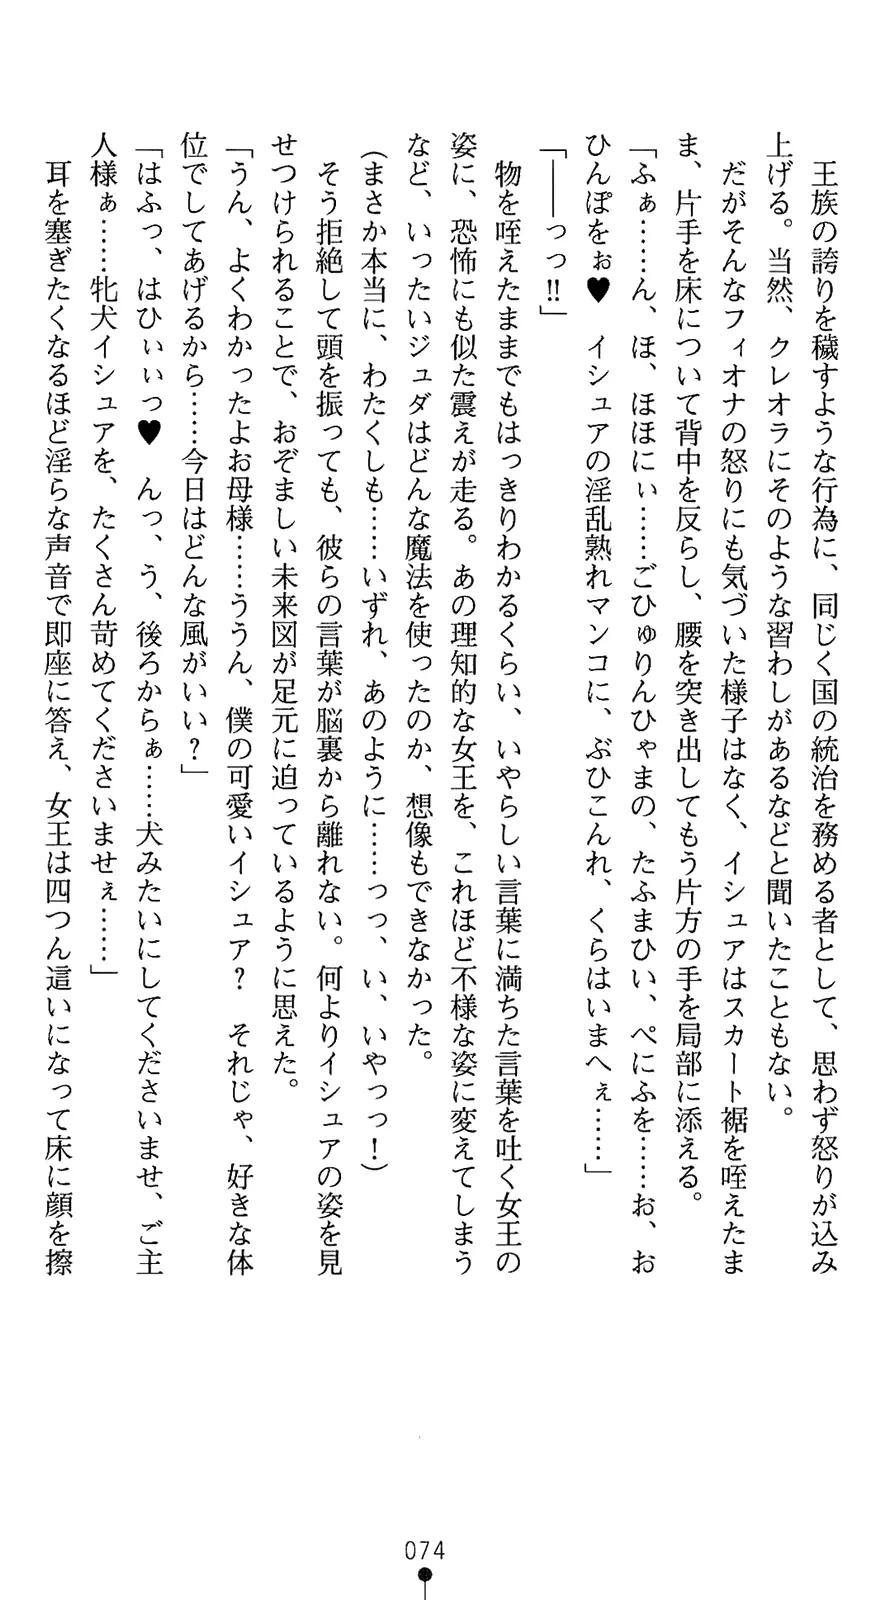 王族の誇りを穢すような行為に、同じく国の統治を務める者として、思わず怒りが込み
上げる。当然、クレオラにそのような習わしがあるなどと聞いたこともない。
だがそんなフィオナの怒りにも気づいた様子はなく、イシュアはスカート裾を咥えたま
ま、片手を床について背中を反らし、腰を突き出してもう片方の手を局部に添える。
「ふぁ……ん、ほ、ほほにぃ……ごひゅりんひゃまの、たふまひい、ぺにふを……お、お
ひんぽをぉ♥　イシュアの淫乱熟れマンコに、ぶひこんれ、くらはいまへぇ……」
「――っっ!!」
物を咥えたままでもはっきりわかるくらい、いやらしい言葉に満ちた言葉を吐く女王の
姿に、恐怖にも似た震えが走る。あの理知的な女王を、これほど不様な姿に変えてしまう
など、いったいジュダはどんな魔法を使ったのか、想像もできなかった。
(まさか本当に、わたくしも……いずれ、あのように……っっ、い、いやっっ！)
そう拒絶して頭を振っても、彼らの言葉が脳裏から離れない。何よりイシュアの姿を見
せつけられることで、おぞましい未来図が足元に迫っているように思えた。
「うん、よくわかったよお母様……ううん、僕の可愛いイシュア？　それじゃ、好きな体
位でしてあげるから……今日はどんな風がいい？」
「はふっ、はひぃぃっ♥　んっ、う、後ろからぁ……犬みたいにしてくださいませ、ご主
人様ぁ……牝犬イシュアを、たくさん苛めてくださいませぇ……」
耳を塞ぎたくなるほど淫らな声音で即座に答え、女王は四つん這いになって床に顔を擦
074